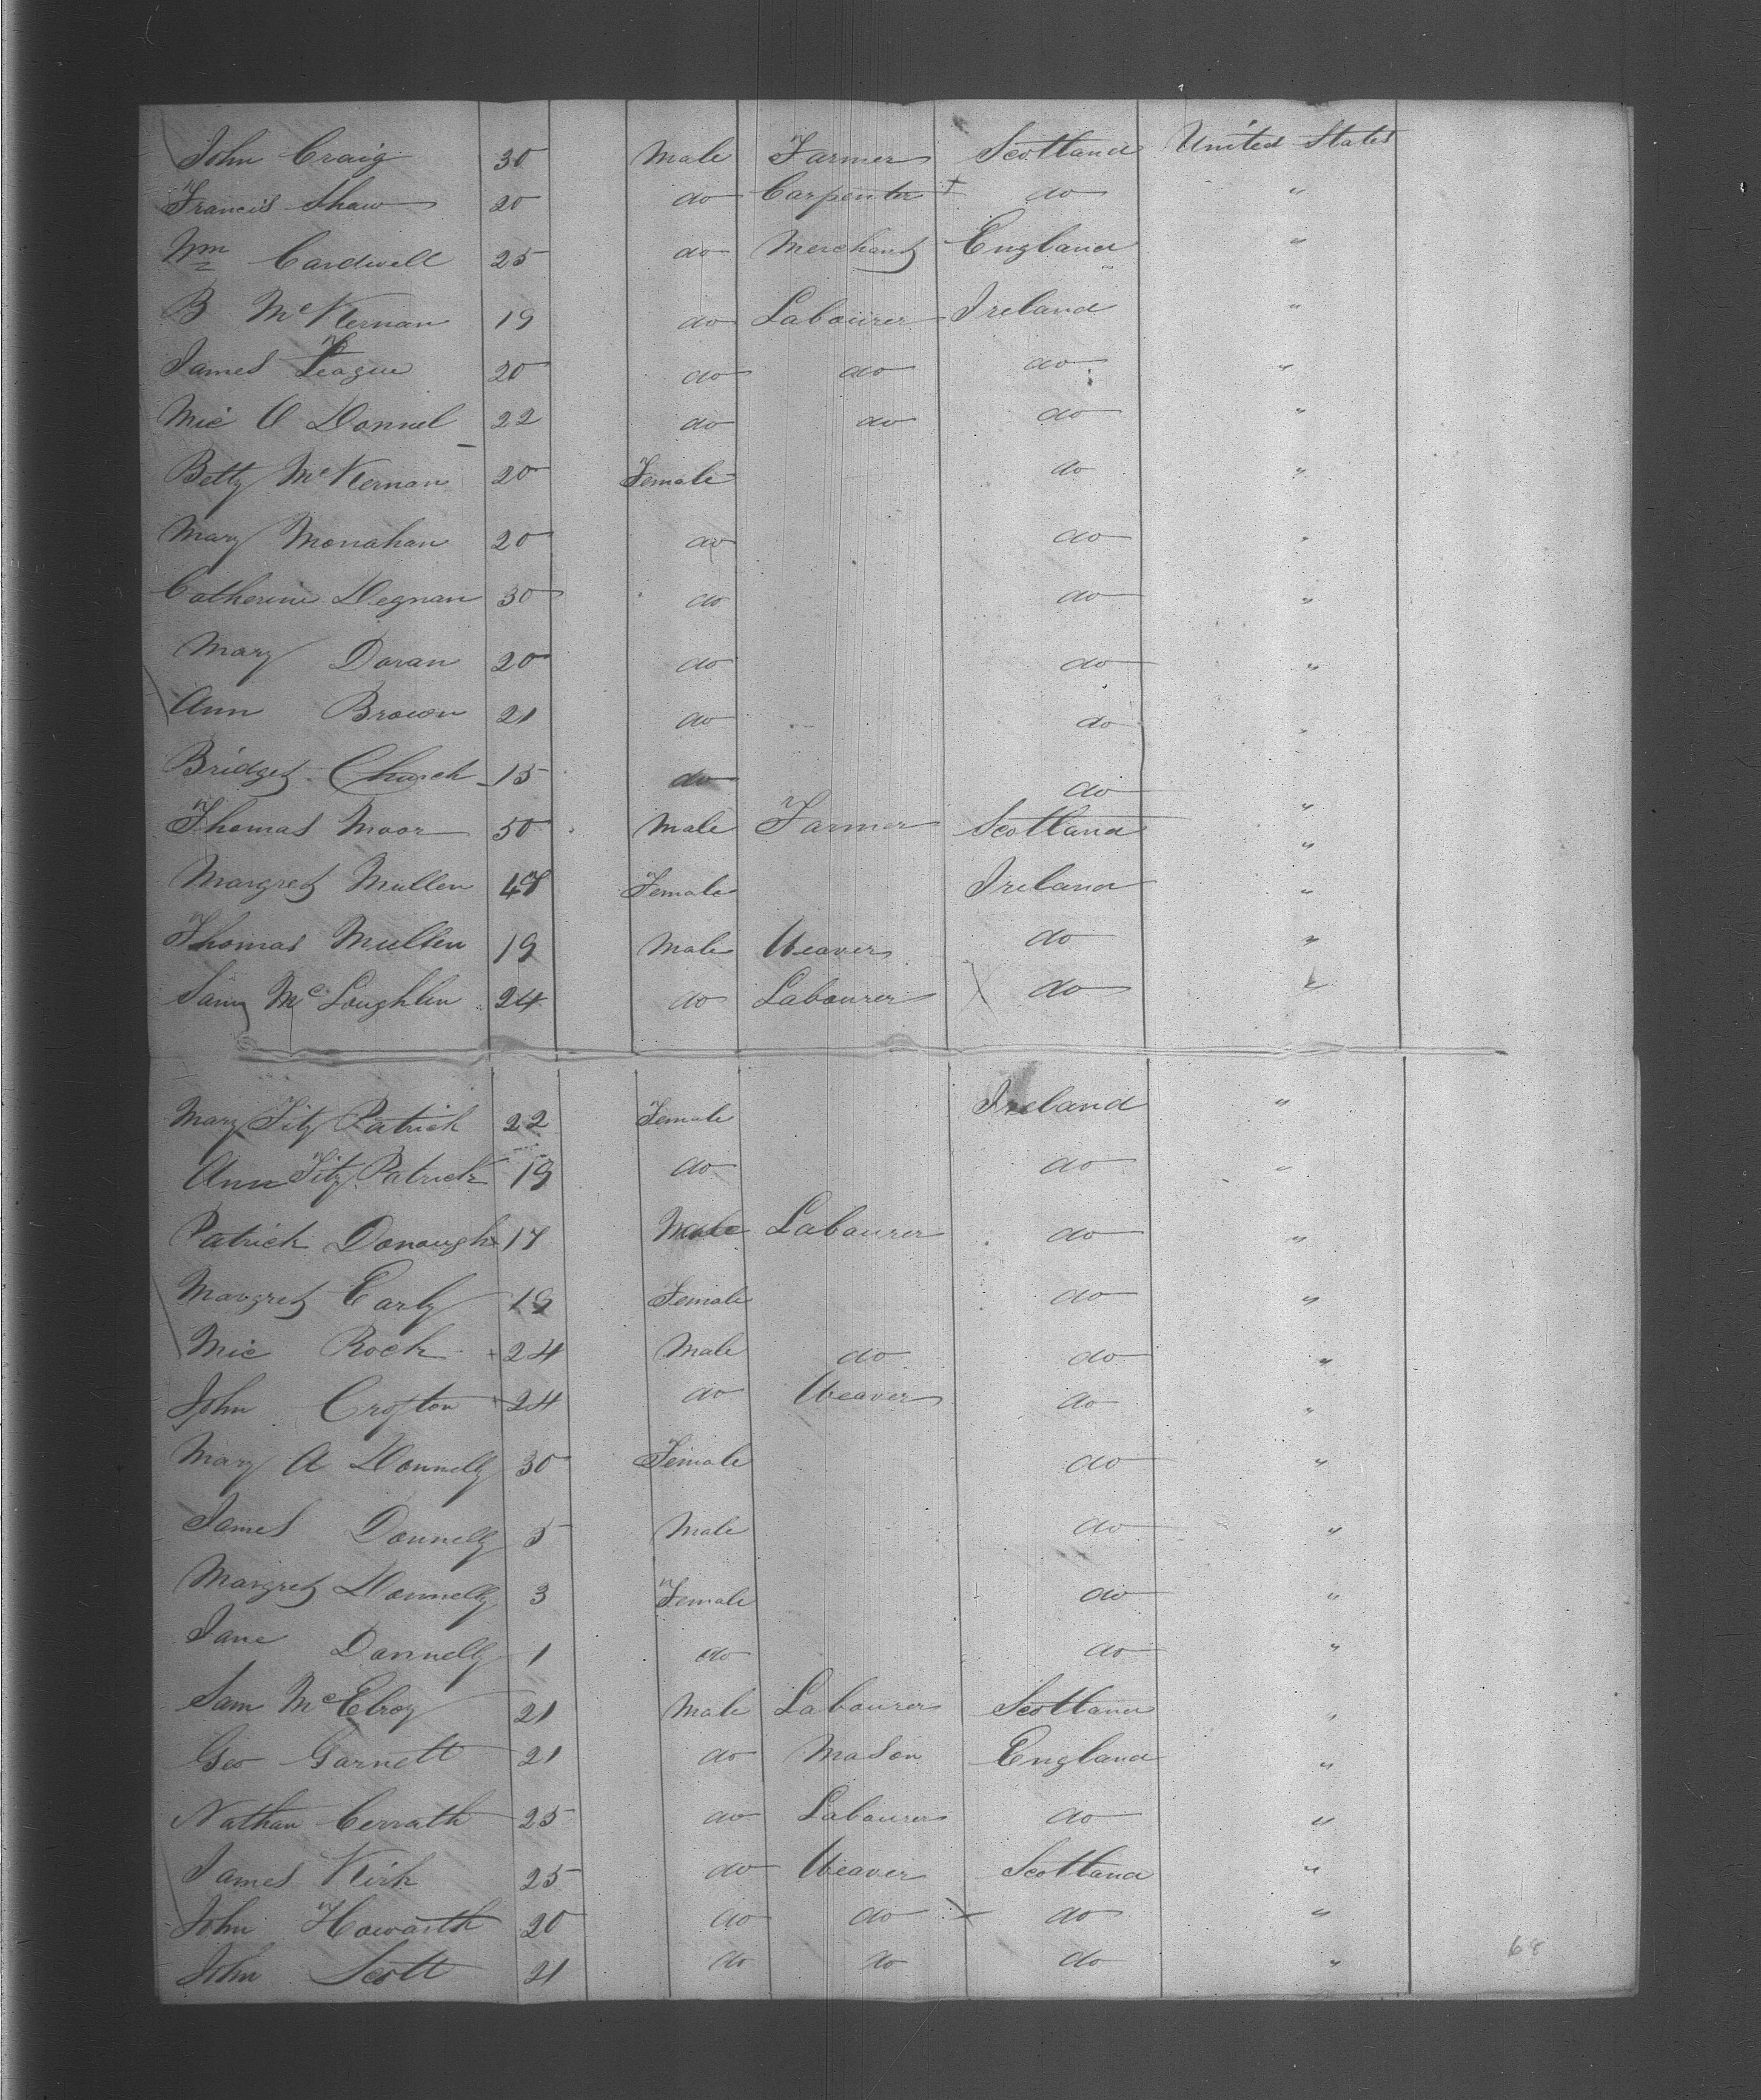 John Craig 30 Male Farmer Scotland United States
Francis Shaw 20 do Carpenter + do "
Wm Cardwell 25 do Merchant England "
B McKernan 19 do Labourer Ireland "
James Teague 20 do do do "
Mic O Donnel 22 do do do "
Betty McKernan 20 Female do "
Mary Monahan 20 do do "
Catherine Degnan 30 do do "
Mary Doran 20 do do "
Ann Brown 21 do do "
Bridget Church 15 do do "
Thomas Moor 50 Male Farmer Scotland "
Margret Mullen 47 Female Ireland "
Thomas Mullen 19 Male Weaver do "
Samy McLoughlin 24 do Labourer X do "
Mary Fitz Patrick 22 Female Ireland "
Ann Fitz Patrick 19 do do "
Patrick Donough 17 Male Labourer do "
Margret Early 19 Female do "
Mic Rock 24 Male do do "
John Crofton 24 do Weaver do "
Mary A Donnelly 30 Female do "
James Donnelly 5 Male do "
Margret Donnelly 3 Female do "
Jane Donnelly 1 do do "
Sam McElroy 21 Male Labourer Scotland "
Geo Garnett 21 do Mason England "
Nathan 25 do Labourer do "
James Kirk 25 do Weaver Scotland "
John Howarth 20 do do X do "
John Scott 21 do do do "
68